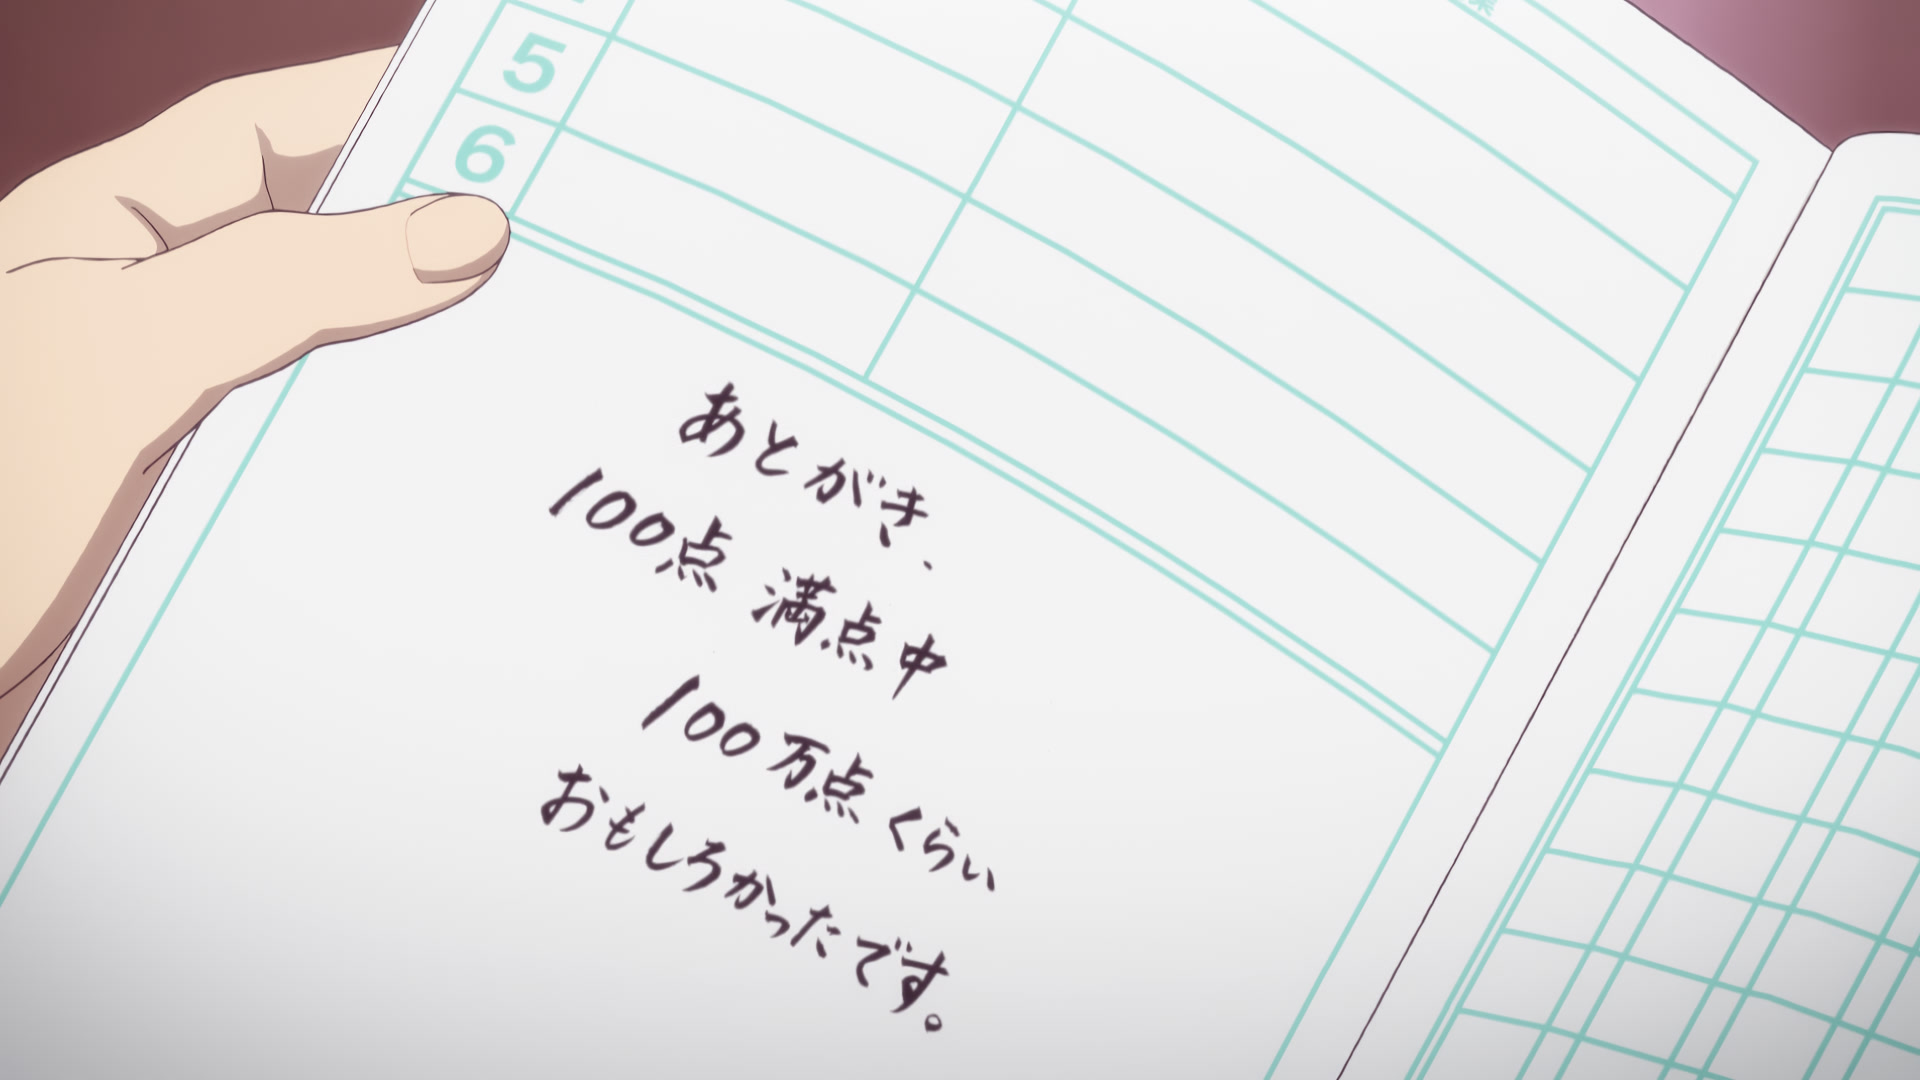 業
5
6
あとがき、
100点 満点中
100万点くらい
おもしろかったです。